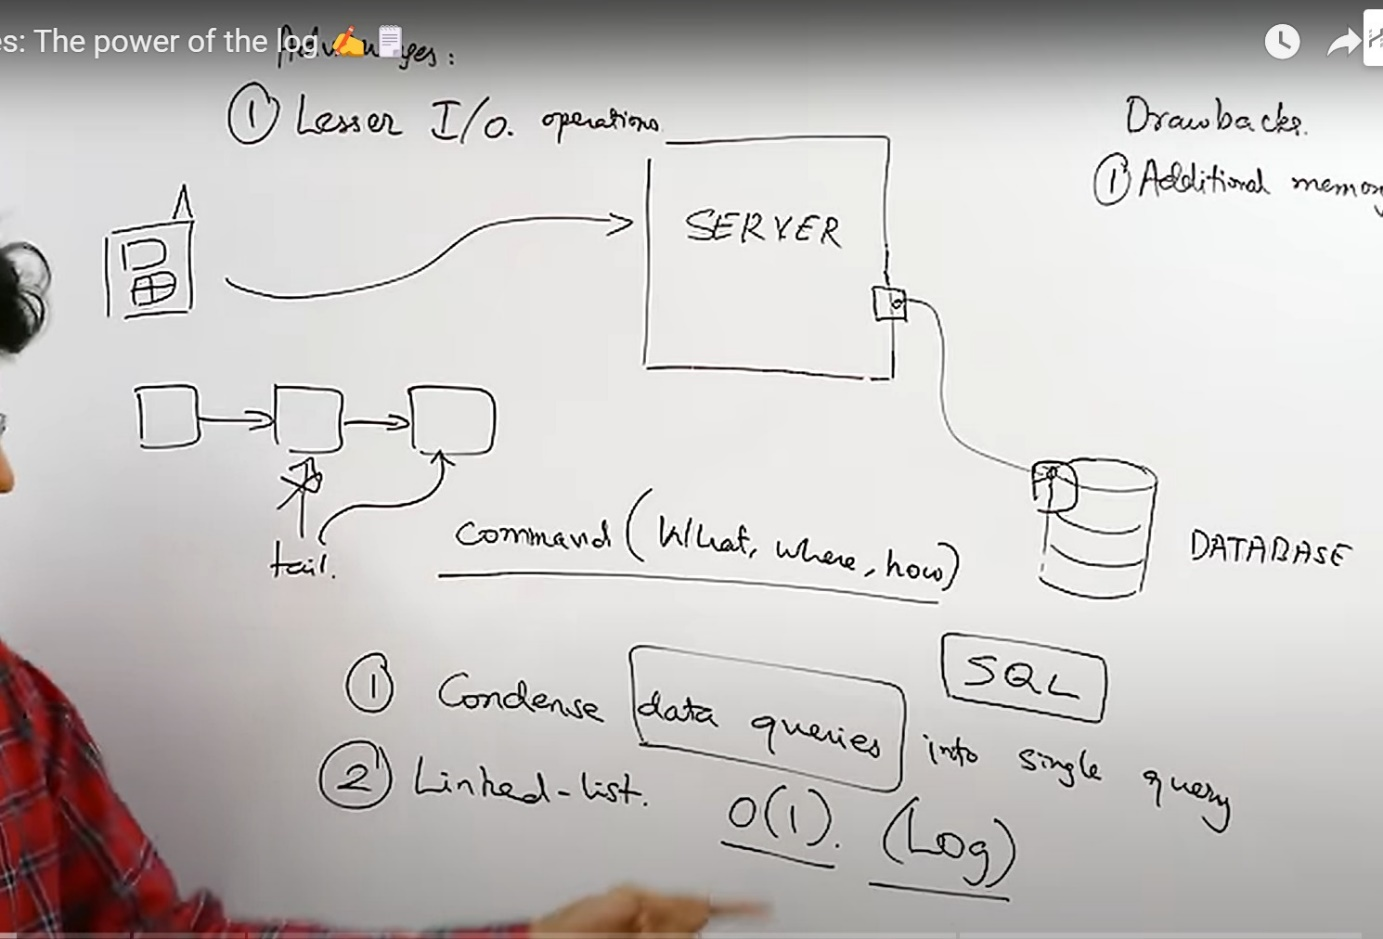 es: The power of the log ✍️🗒️
Advantages:
① Lesser I/O. operations
Drawbacks.
① Additional memory
SERVER
tail.
Command (What, where, how)
DATABASE
SQL
① Condense data queries into single query
② Linked-list. O(1). (Log)